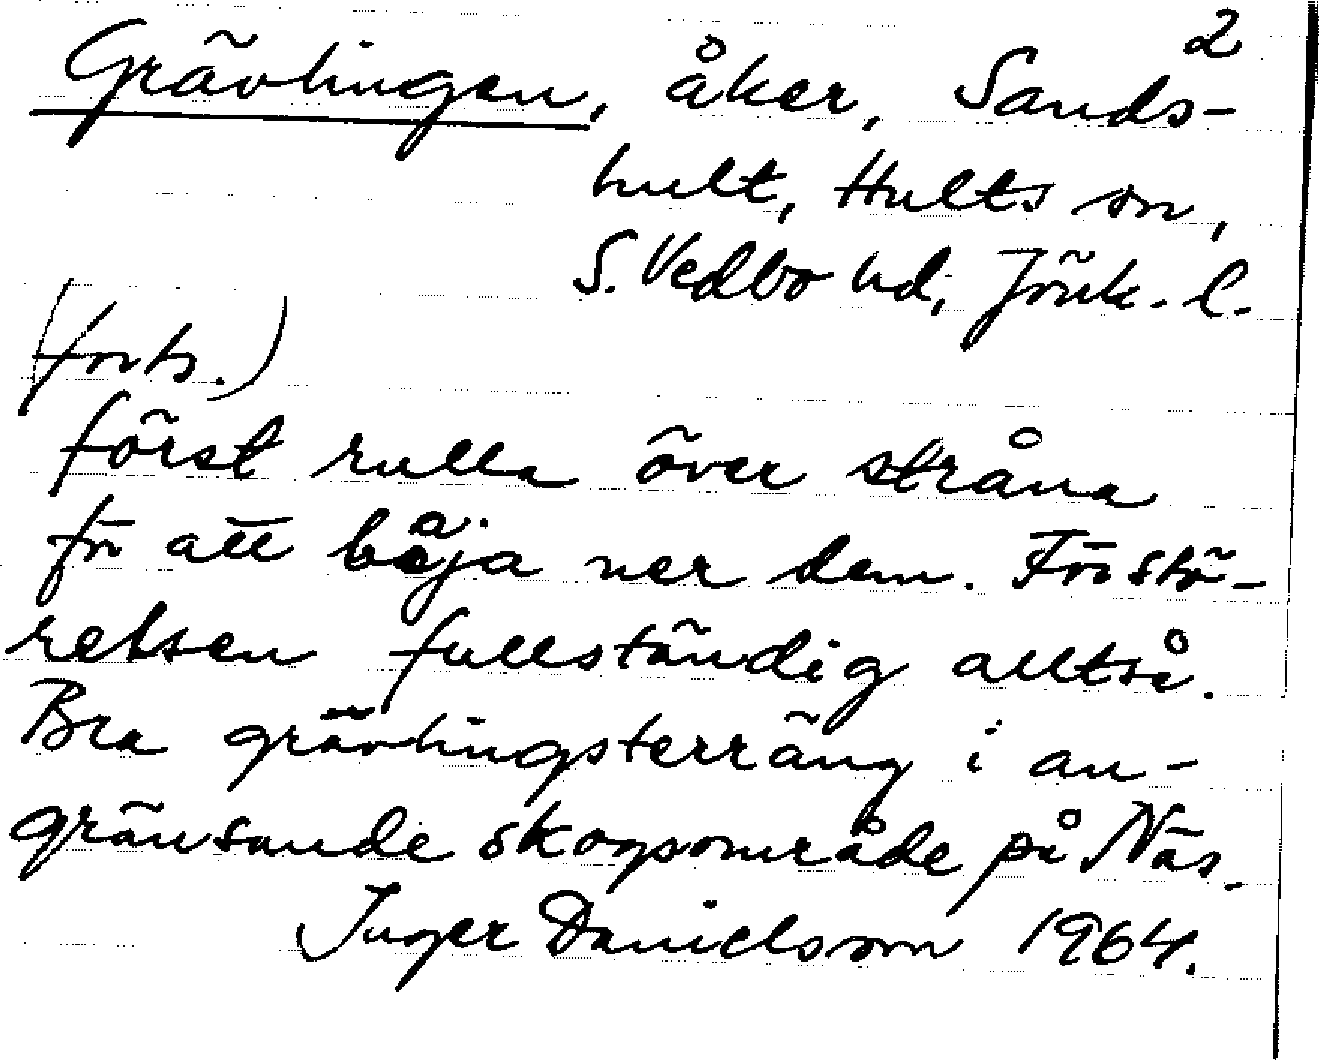 2
Grävlingen, åker, Sands-
hult, Hults sn,
S. Vedbo hd, Jönk. l.
(forts.)
först rulla över stråna
för att båja ner dem. Förstö-
relsen fullständig alltså.
Bra grävlingsterräng i an-
gränsande skogsområde på Näs.
Inger Danielsson 1964.